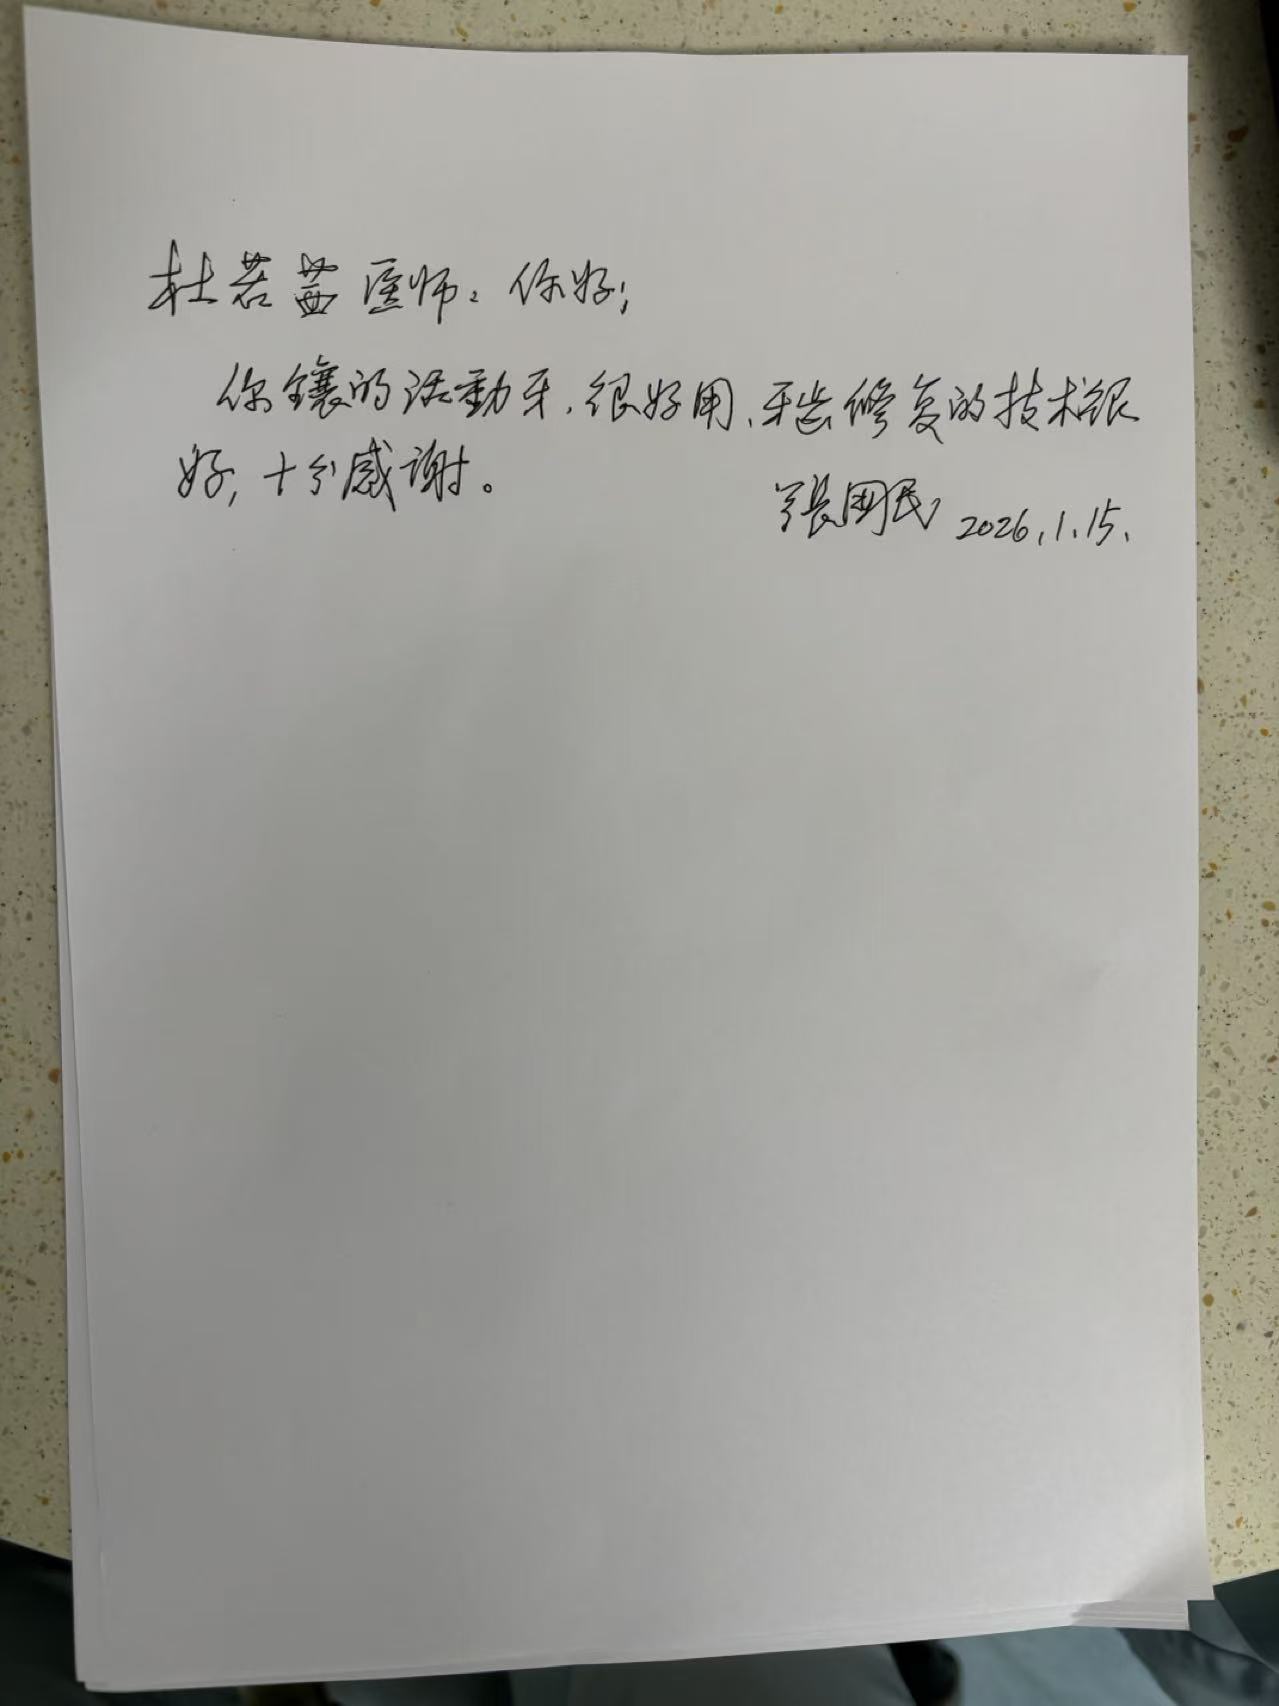 杜若茜医师：你好；
你鑲的活動牙，很好用、牙齿修复的技术很
好，十分感谢。
張国民 2026.1.15.